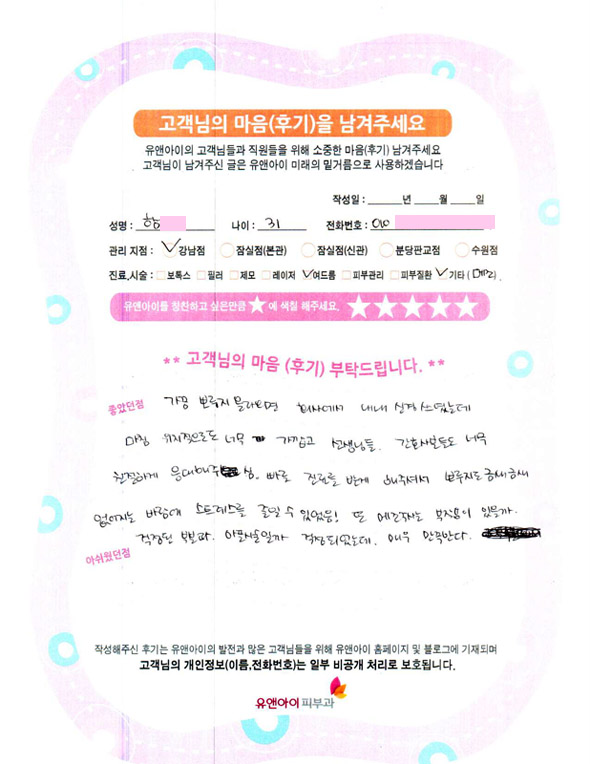 고객님의 마음(후기)을 남겨주세요
유앤아이의 고객님들과 직원들을 위해 소중한 마음(후기) 남겨주세요
고객님이 남겨주신 글은 유앤아이 미래의 밑거름으로 사용하겠습니다
작성일 : 년 월 일
성명 : 함 나이 : 31 전화번호 : 010
관리 지점 : 강남점 잠실점(본관) 잠실점(신관) 분당판교점 수원점
진료,시술 : 보톡스 필러 제모 레이저 여드름 피부관리 피부질환 기타 ( )
유앤아이를 칭찬하고 싶은만큼 ★에 색칠 해주세요. ★★★★★
** 고객님의 마음 (후기) 부탁드립니다. **
좋았던점 가끔 뾰루지 올라오면 회사에서 내내 신경 쓰였는데
마침 위치적으로도 너무 가깝고 선생님들. 간호사분들도 너무
친절하게 응대해주심. 빠로 진료를 받게 해주셔서 뾰루지도 금새금새
없어지는 바람에 스트레스를 줄일 수 있었음! 또 메조주사는 부작용이 있을까.
걱정된 부분과. 아플시술일까 걱정되었는데. 매우 만족한다.
아쉬웠던점
작성해주신 후기는 유앤아이의 발전과 많은 고객님들을 위해 유앤아이 홈페이지 및 블로그에 기재되며
고객님의 개인정보(이름,전화번호)는 일부 비공개 처리로 보호됩니다.
유앤아이 피부과